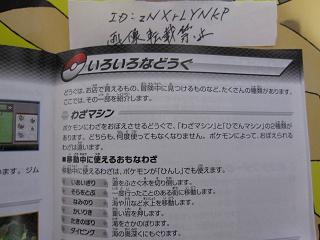 ID:zNXrLYNKP
画像転載等禁止
いろいろなどうぐ
どうぐは、お店で買えるもの、冒険中に見つけるものなど、たくさんの種類があります。
ここでは、その一部を紹介します。
わざマシン
ポケモンにわざをおぼえさせるどうぐで、「わざマシン」と「ひでんマシン」の2種類が
あります。どちらも、何度使ってもなくなりません。ポケモンによって、おぼえられる
わざは違います。
■移動中に使えるおもなわざ
移動中に使えるわざは、ポケモンが「ひんし」でも使えます。
いあいぎり 道をふさぐ木を切り倒します。
そらをとぶ 一度行ったことのある街に移動します。
なみのり 海や川など水上を移動します。
かいりき 重い岩を押します。
たきのぼり 滝をさかのぼります。
ダイビング 海の奥深くにもぐります。
す。ジム